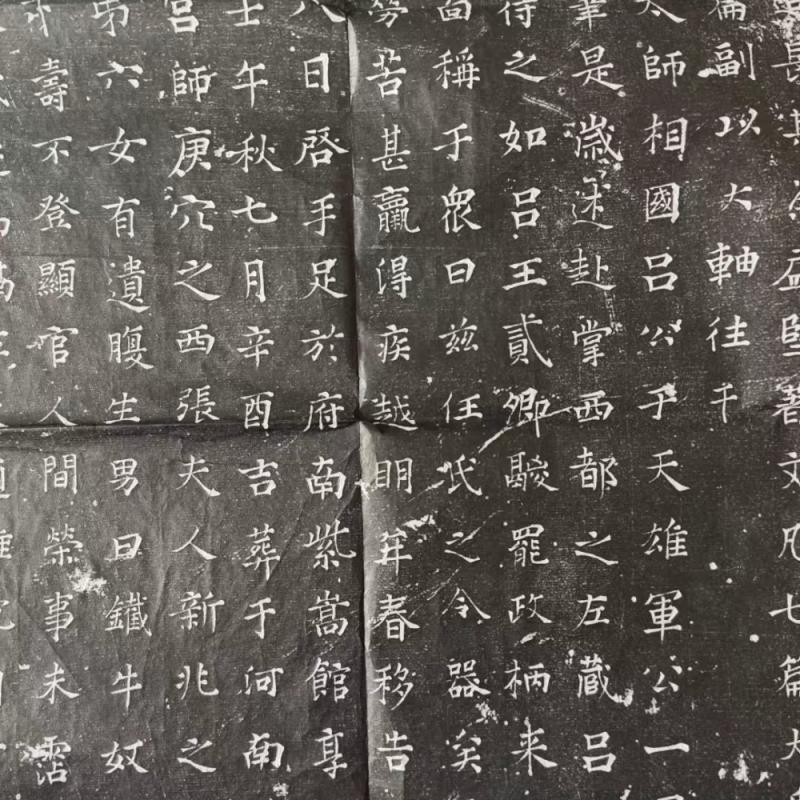 長其益堅著文凡七篇大
篇副以大軸往干
太師相國呂公于天雄軍公一
是歲赴掌西都之左藏呂
待之如呂王貳卿駿罷政柄来
面稱于衆曰兹任氏之令器矣
勞苦甚羸得疾越明年春移告
八日啓手足於府南紫嵩館享
壬午秋七月辛酉吉葬于河南
宮師庚穴之西張夫人新兆之
弟六女有遺腹生男曰鐵牛奴
壽不登顯官人間榮事未霑